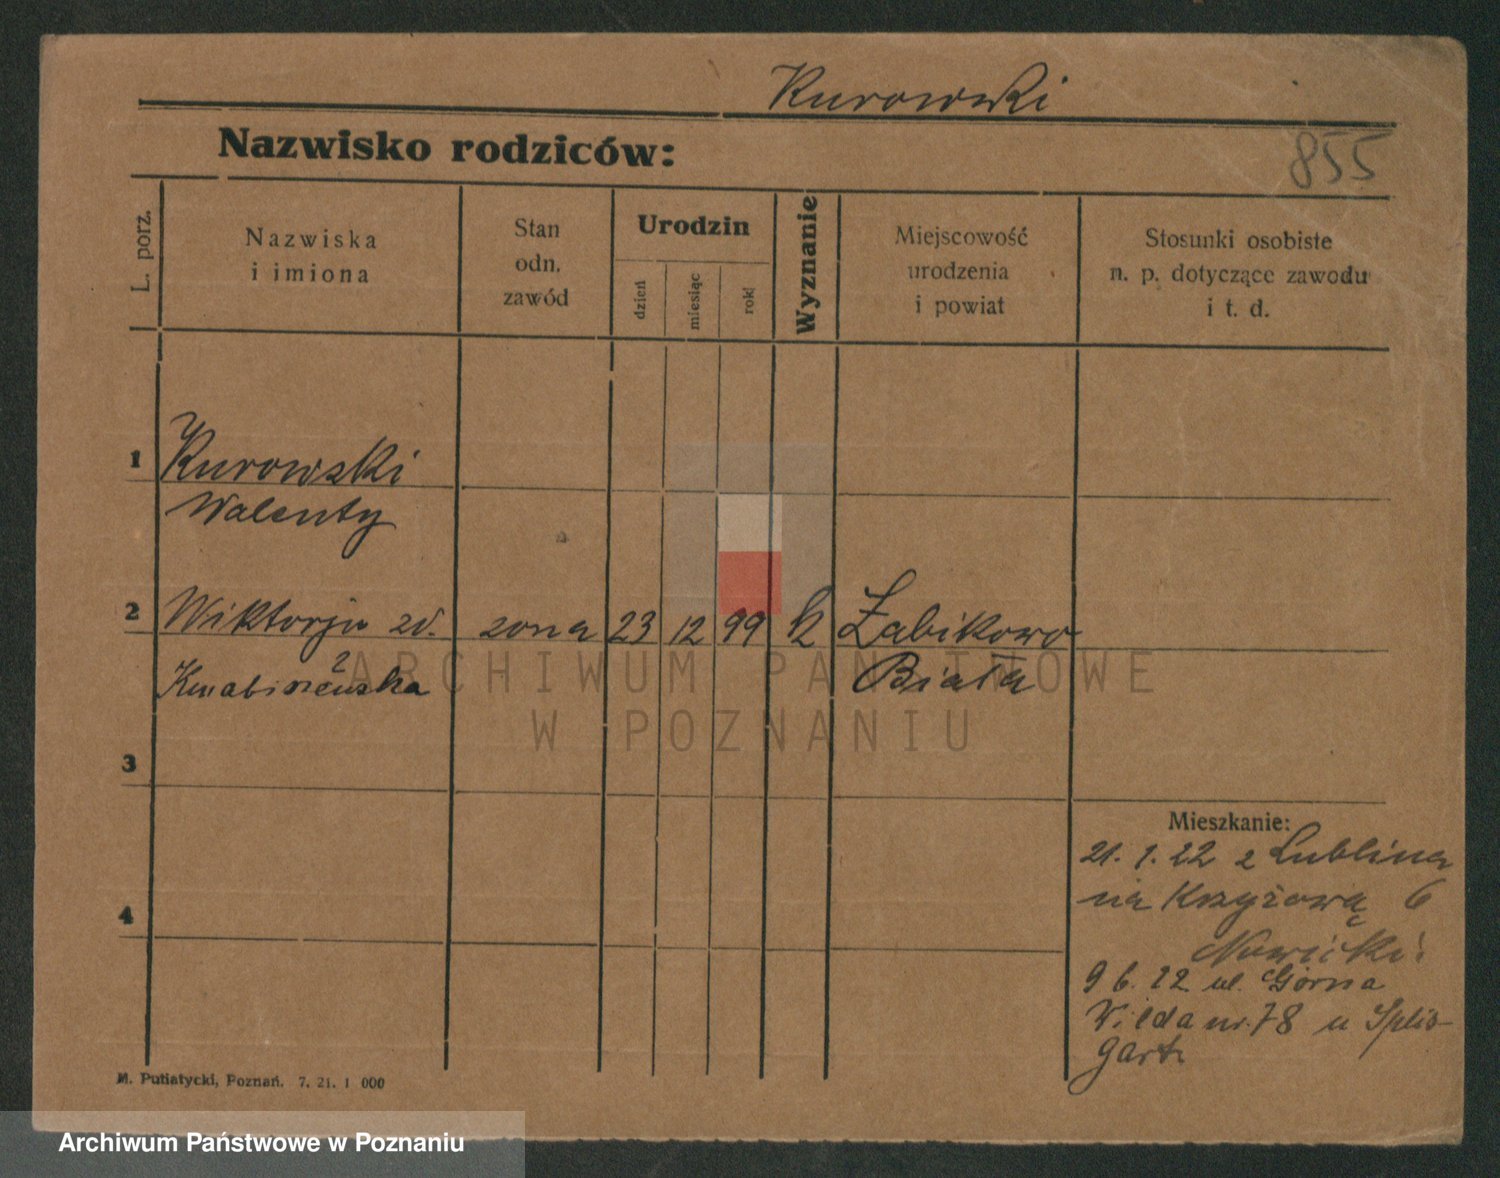 Kurowski
Nazwisko rodziców:
855
L. porz.
Nazwiska
i imiona
Stan
odn.
zawód
Urodzin
dzień
miesiąc
rok
Wyznanie
Miejscowość
urodzenia
i powiat
Stosunki osobiste
n. p. dotyczące zawodu
i t. d.
1
Kurowski
Walenty
2
Wiktorja zd. żona 23 12 99 k Żabikowo
Biała
ARCHIWUM PAŃSTWOWE
W POZNANIU
3
4
Mieszkanie:
21. 1. 22 z Lublina
na Krzyżową 6
Nowicki
9 6. 22 ul. Górna
Wilda nr. 78 u Splis-
gart
M. Putiatycki, Poznań. 7. 21. 1 000
Archiwum Państwowe w Poznaniu